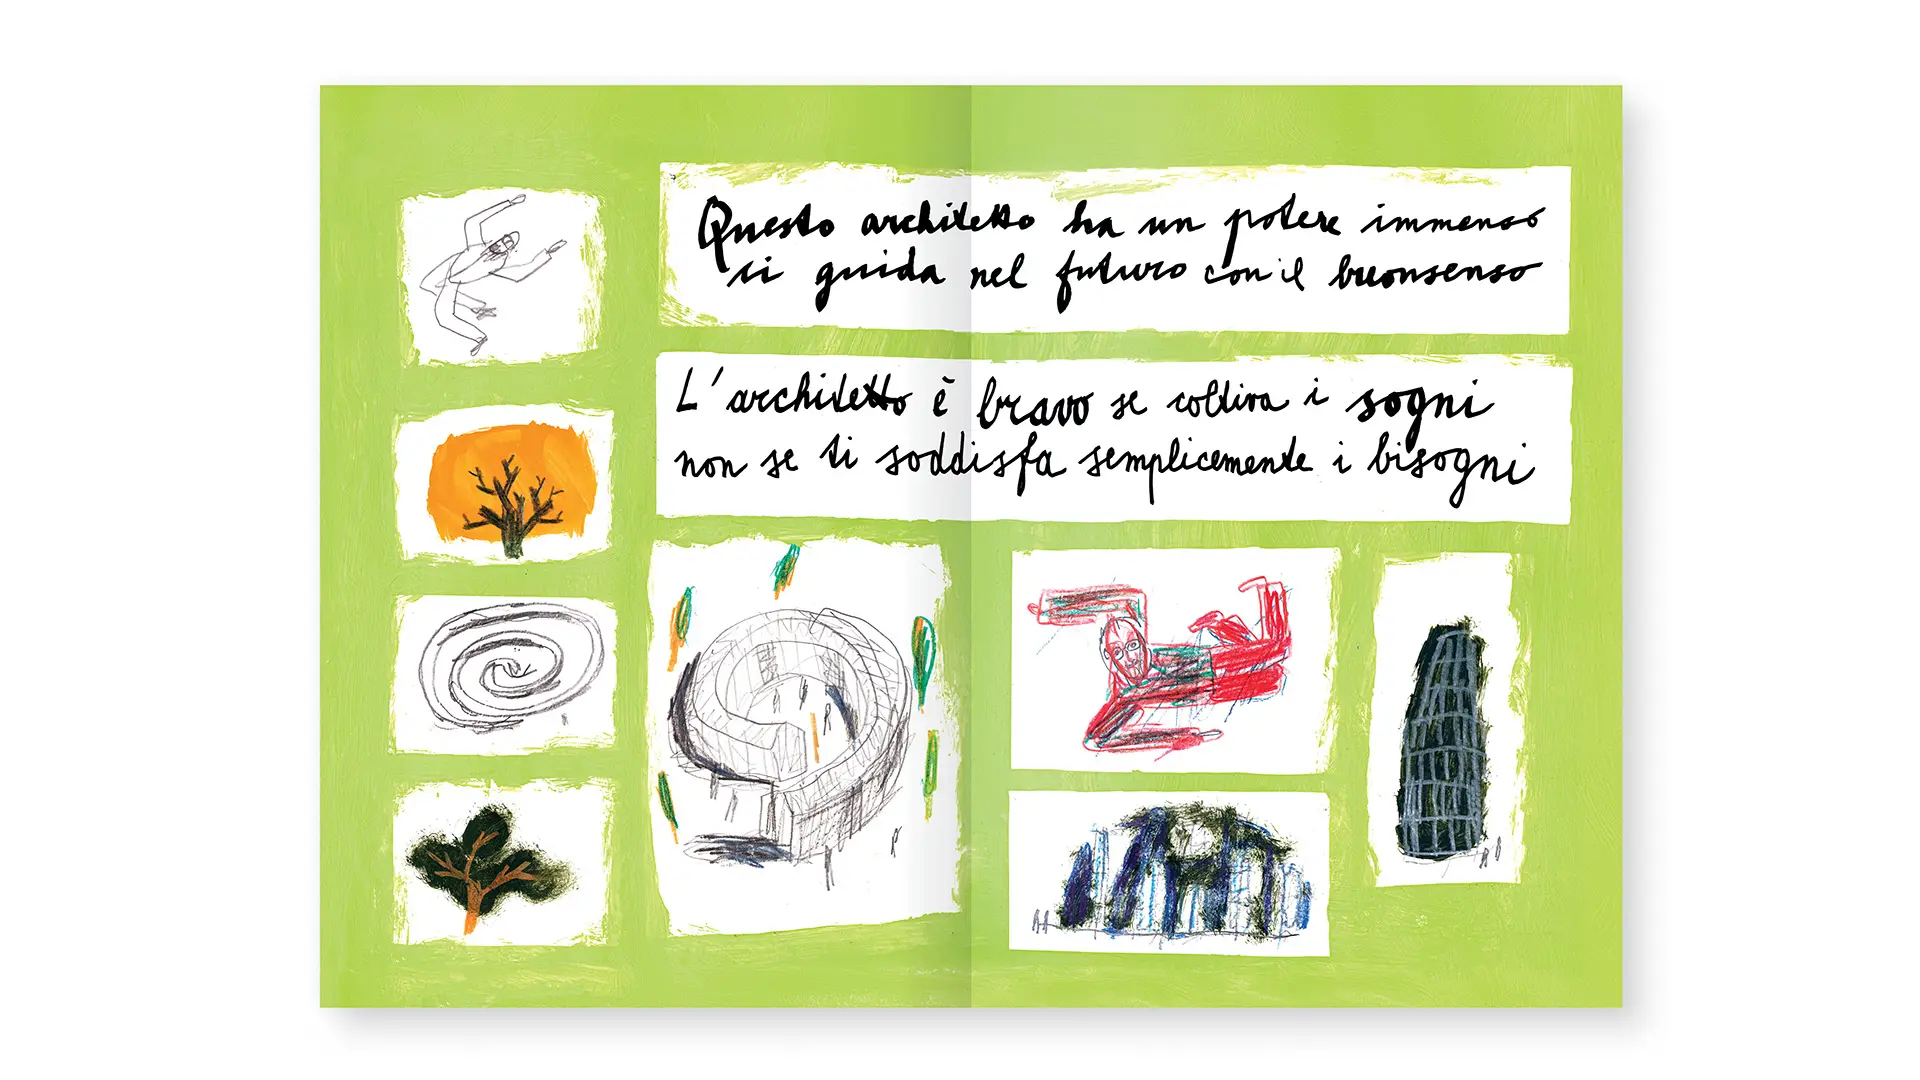 Questo architetto ha un potere immenso
ti guida nel futuro con il buonsenso
L'architetto è bravo se coltiva i sogni
non se ti soddisfa semplicemente i bisogni